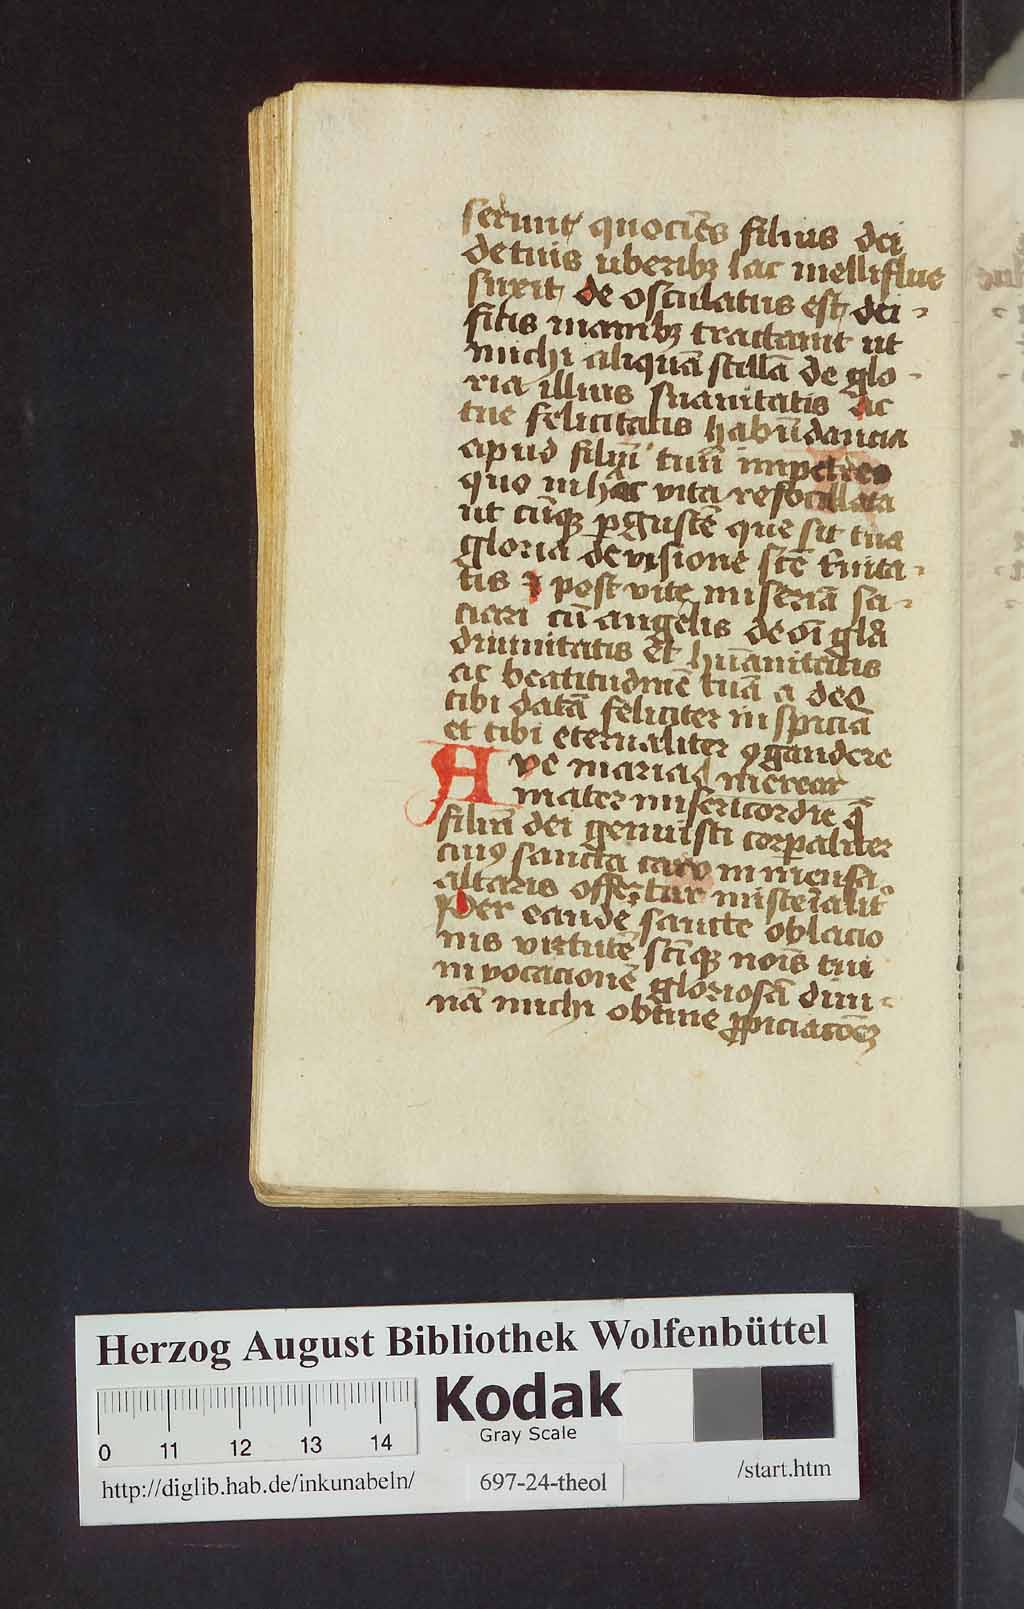 serunt quociēs filius dei
de tuis uberibꝫ lac melliflue
suxit de osculatus est dei-
ficis manibꝫ tractauit ut
michi aliquā stillā de glo-
ria illius suauitatis ac
tue felicitatis habūdancia
apud filiū tuū impetres
quo in hac vita refocillata
ut cūqꝫ pgustē que sit tua
gloria de visione scē t̄nita-
tis ⁊ post vite miseriā sa-
ciari cū angelis de oī glā
diuinitatis et hūanitatis
ac beatitudinē tuā a deo
tibi datā feliciter inspiciā
et tibi eternaliter ꝯgaudere
Ave maria
mater misericordie q̄
filiū dei genuisti corpaliter
cuiꝯ sancta caro in mensa
altaris offertur misterialit
Per eandē sancte oblacio
nis virtutē scīqꝫ nōis tui
inuocacionē gloriosā diui-
nā michi obtine ꝓpiciacōeꝫ
Herzog August Bibliothek Wolfenbüttel
Kodak
Gray Scale
0 11 12 13 14
http://diglib.hab.de/inkunabeln/
697-24-theol
/start.htm